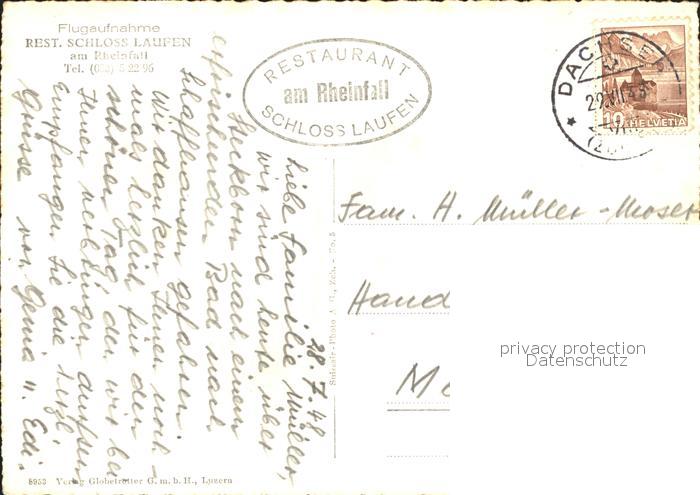 Flugaufnahme
REST. SCHLOSS LAUFEN
am Rheinfall
Tel. (053) 5 22 96
RESTAURANT
am Rheinfall
SCHLOSS LAUFEN
DACHSEN
HELVETIA
10
28.7.48
Liebe Familie Müller,
wir sind heute über
Steckborn nach einem
erfrischenden Bad nach
Schaffhausen gefahren.
Wir danken Ihnen noch-
mals herzlich für den
schönen Tag den wir bei
Ihnen verbringen durften
Empfangen Sie die herzl.
Grüsse von Genia u. Edi.
Fam. H. Müller-Moser
Hand
privacy protection
Datenschutz
8953 Verlag Globetrotter G.m.b.H., Luzern